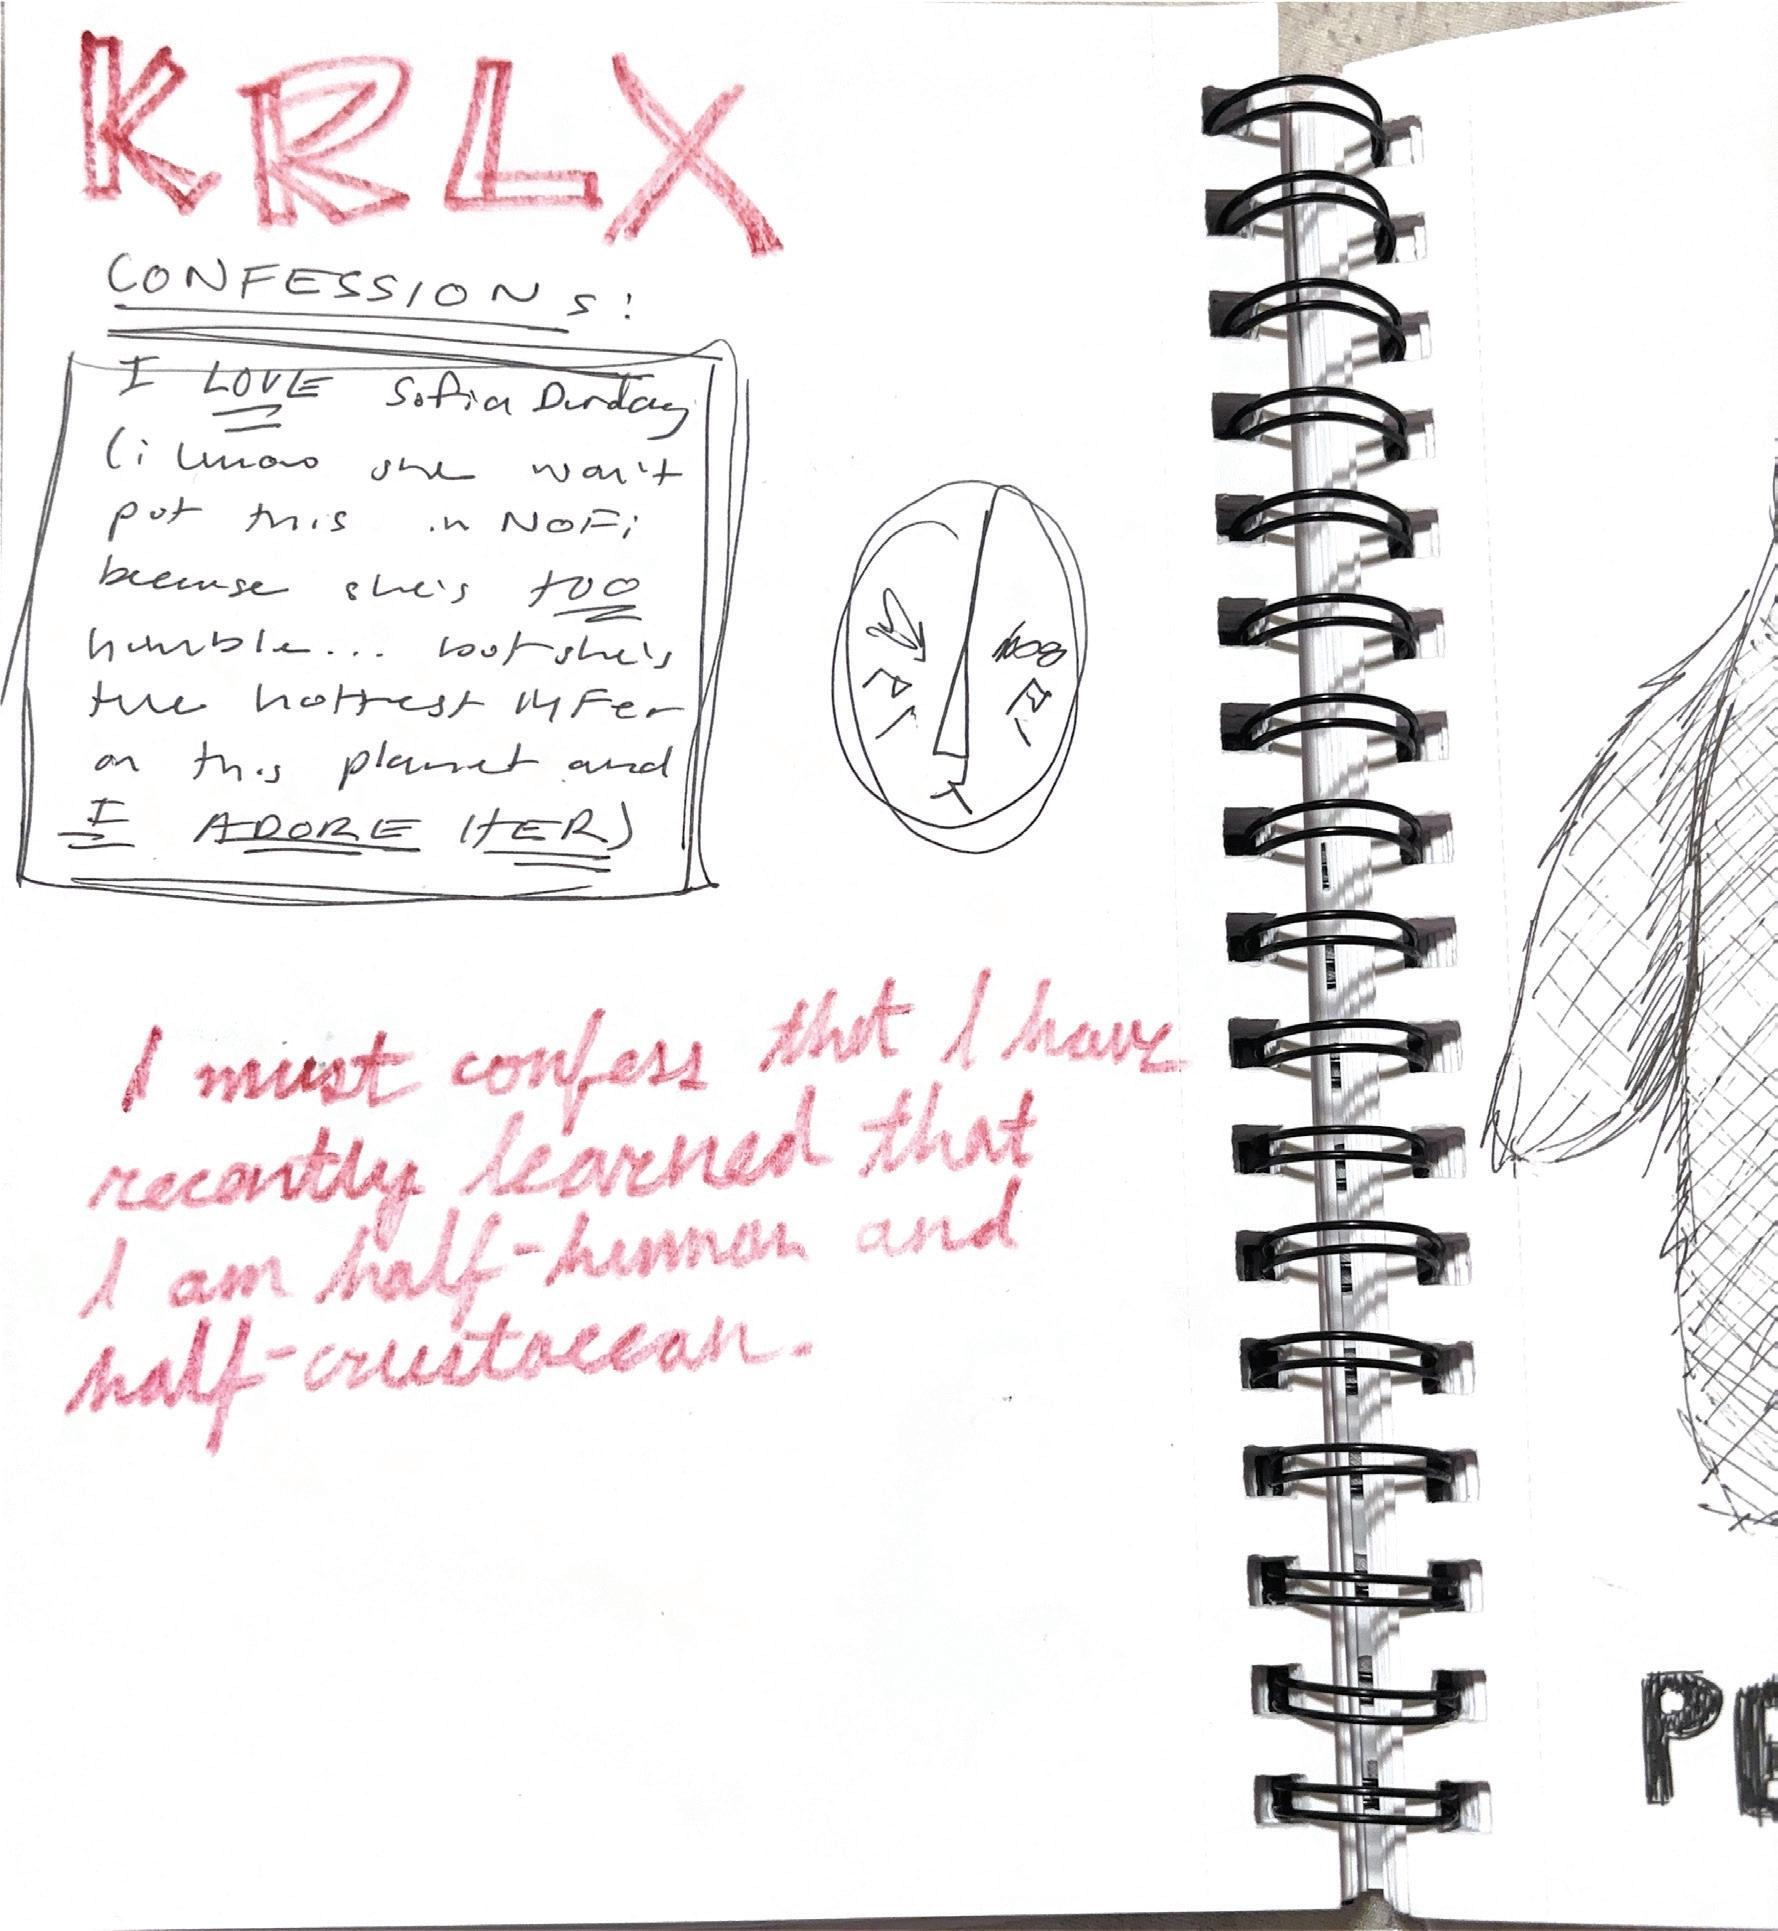 KRLX
CONFESSIONS:
I LOVE Sofia Durdag
(i know she won't
put this in NOFi
because she's too
humble... but she's
the hottest MFer
on this planet and
I ADORE HER)
I must confess that I have
recently learned that
I am half-human and
half-crustacean.
PE